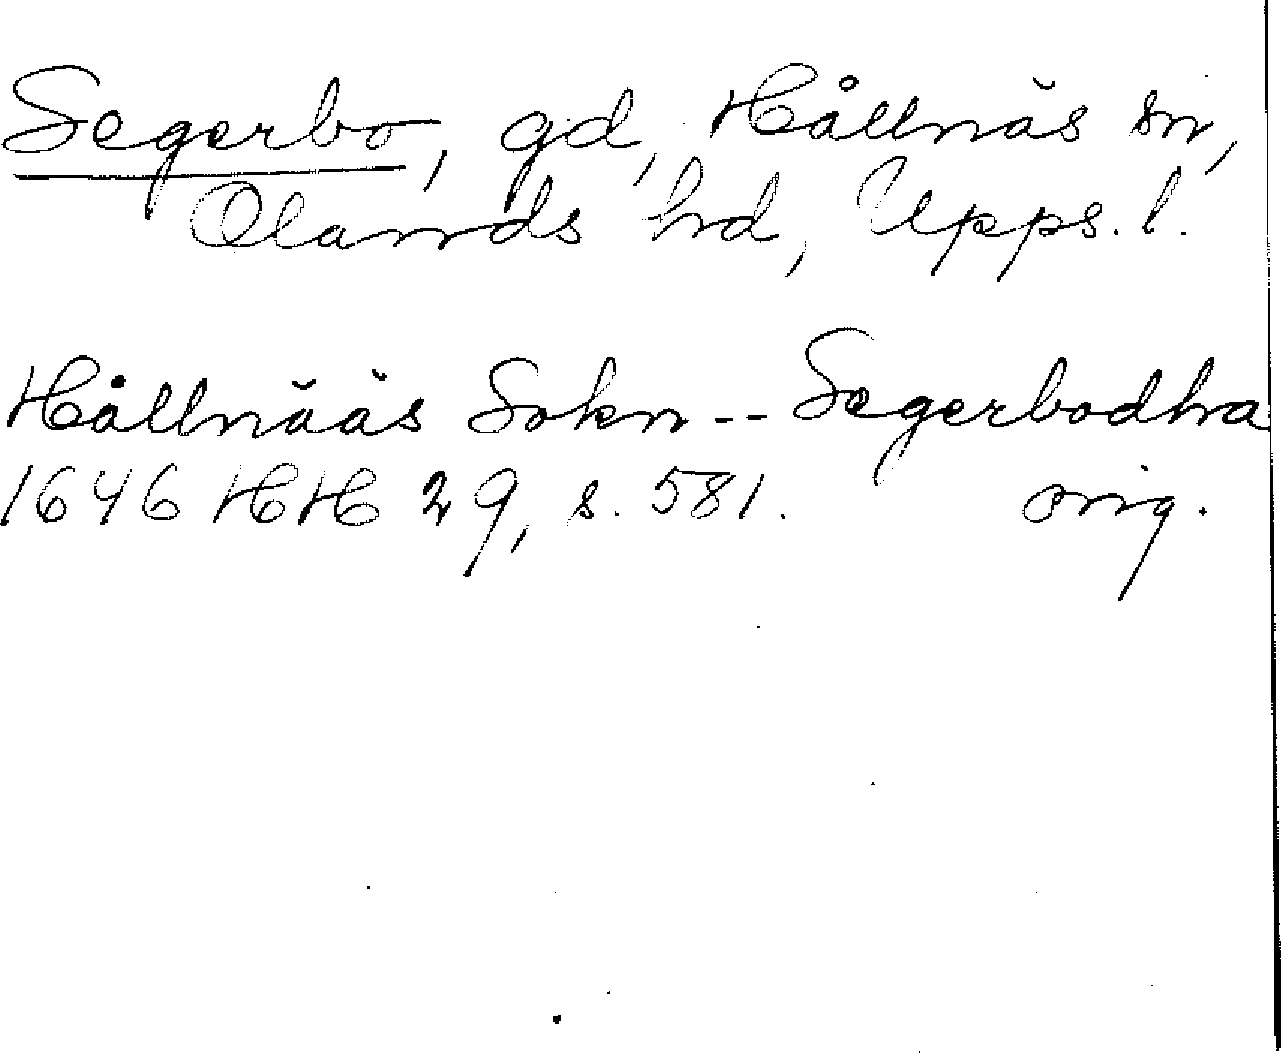 Segerbo, gd, Hållnäs sn,
Olands hd, Upps. l.
Hållnääs Sokn -- Segerbodha
1646 HH 29, s. 581. orig.